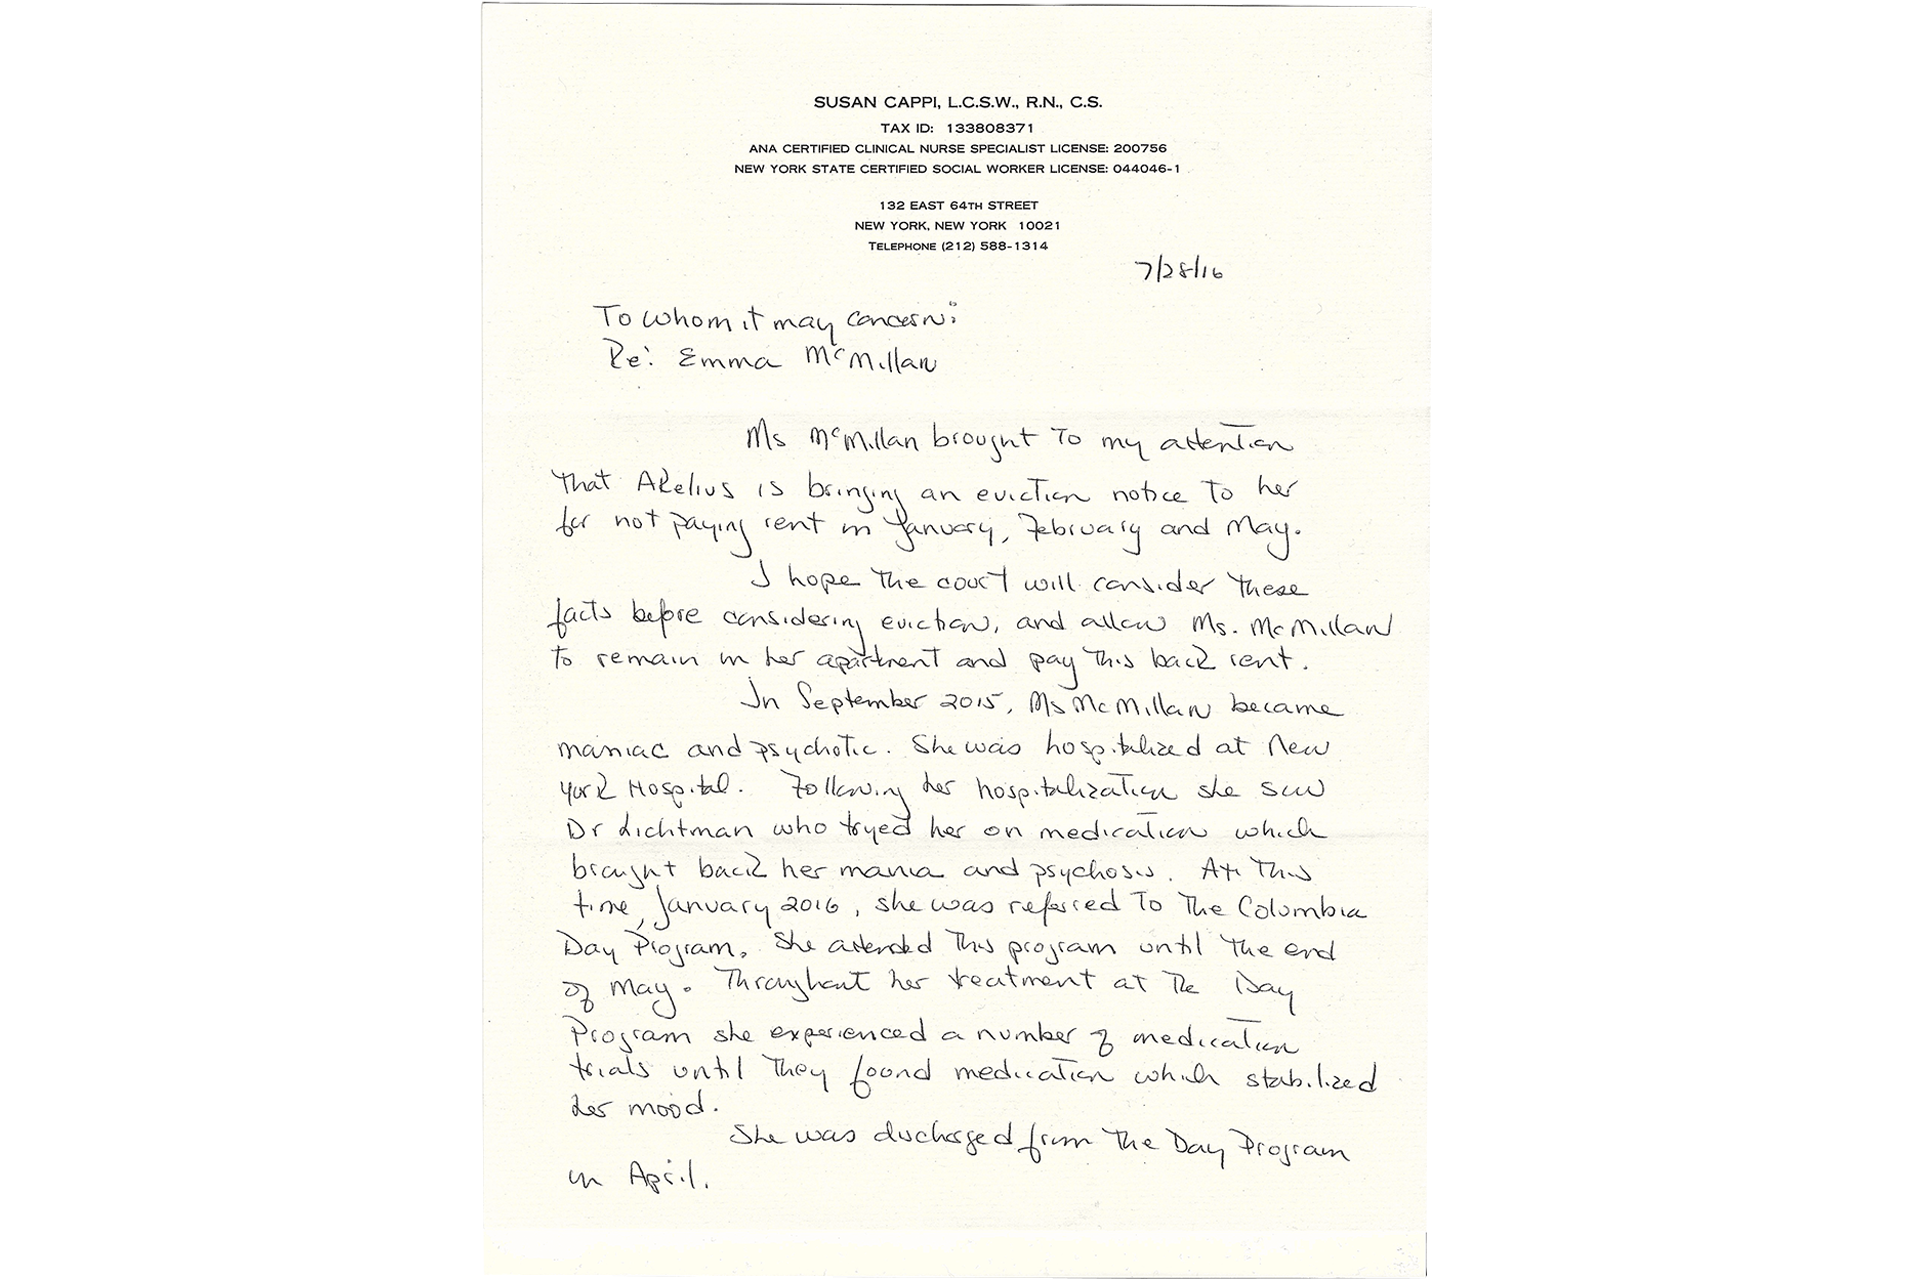 SUSAN CAPPI, L.C.S.W., R.N., C.S.
TAX ID: 133808371
ANA CERTIFIED CLINICAL NURSE SPECIALIST LICENSE: 200756
NEW YORK STATE CERTIFIED SOCIAL WORKER LICENSE: 044046-1
132 EAST 64TH STREET
NEW YORK, NEW YORK 10021
TELEPHONE (212) 588-1314
7/28/16
To whom it may concern:
Re: Emma McMillan
Ms McMillan brought to my attention
that AKelius is bringing an eviction notice to her
for not paying rent in January, February and May.
I hope the court will consider these
facts before considering eviction, and allow Ms. McMillan
to remain in her apartment and pay this back rent.
In September 2015, Ms McMillan became
maniac and psychotic. She was hospitalized at New
York Hospital. Following her hospitalization she saw
Dr Lichtman who tryed her on medication which
brought back her mania and psychosis. At this
time, January 2016, she was referred to the Columbia
Day Program. She attended this program until the end
of May. Throughout her treatment at the Day
Program she experienced a number of medication
trials until they found medication which stabilized
her mood.
She was discharged from the Day Program
in April.